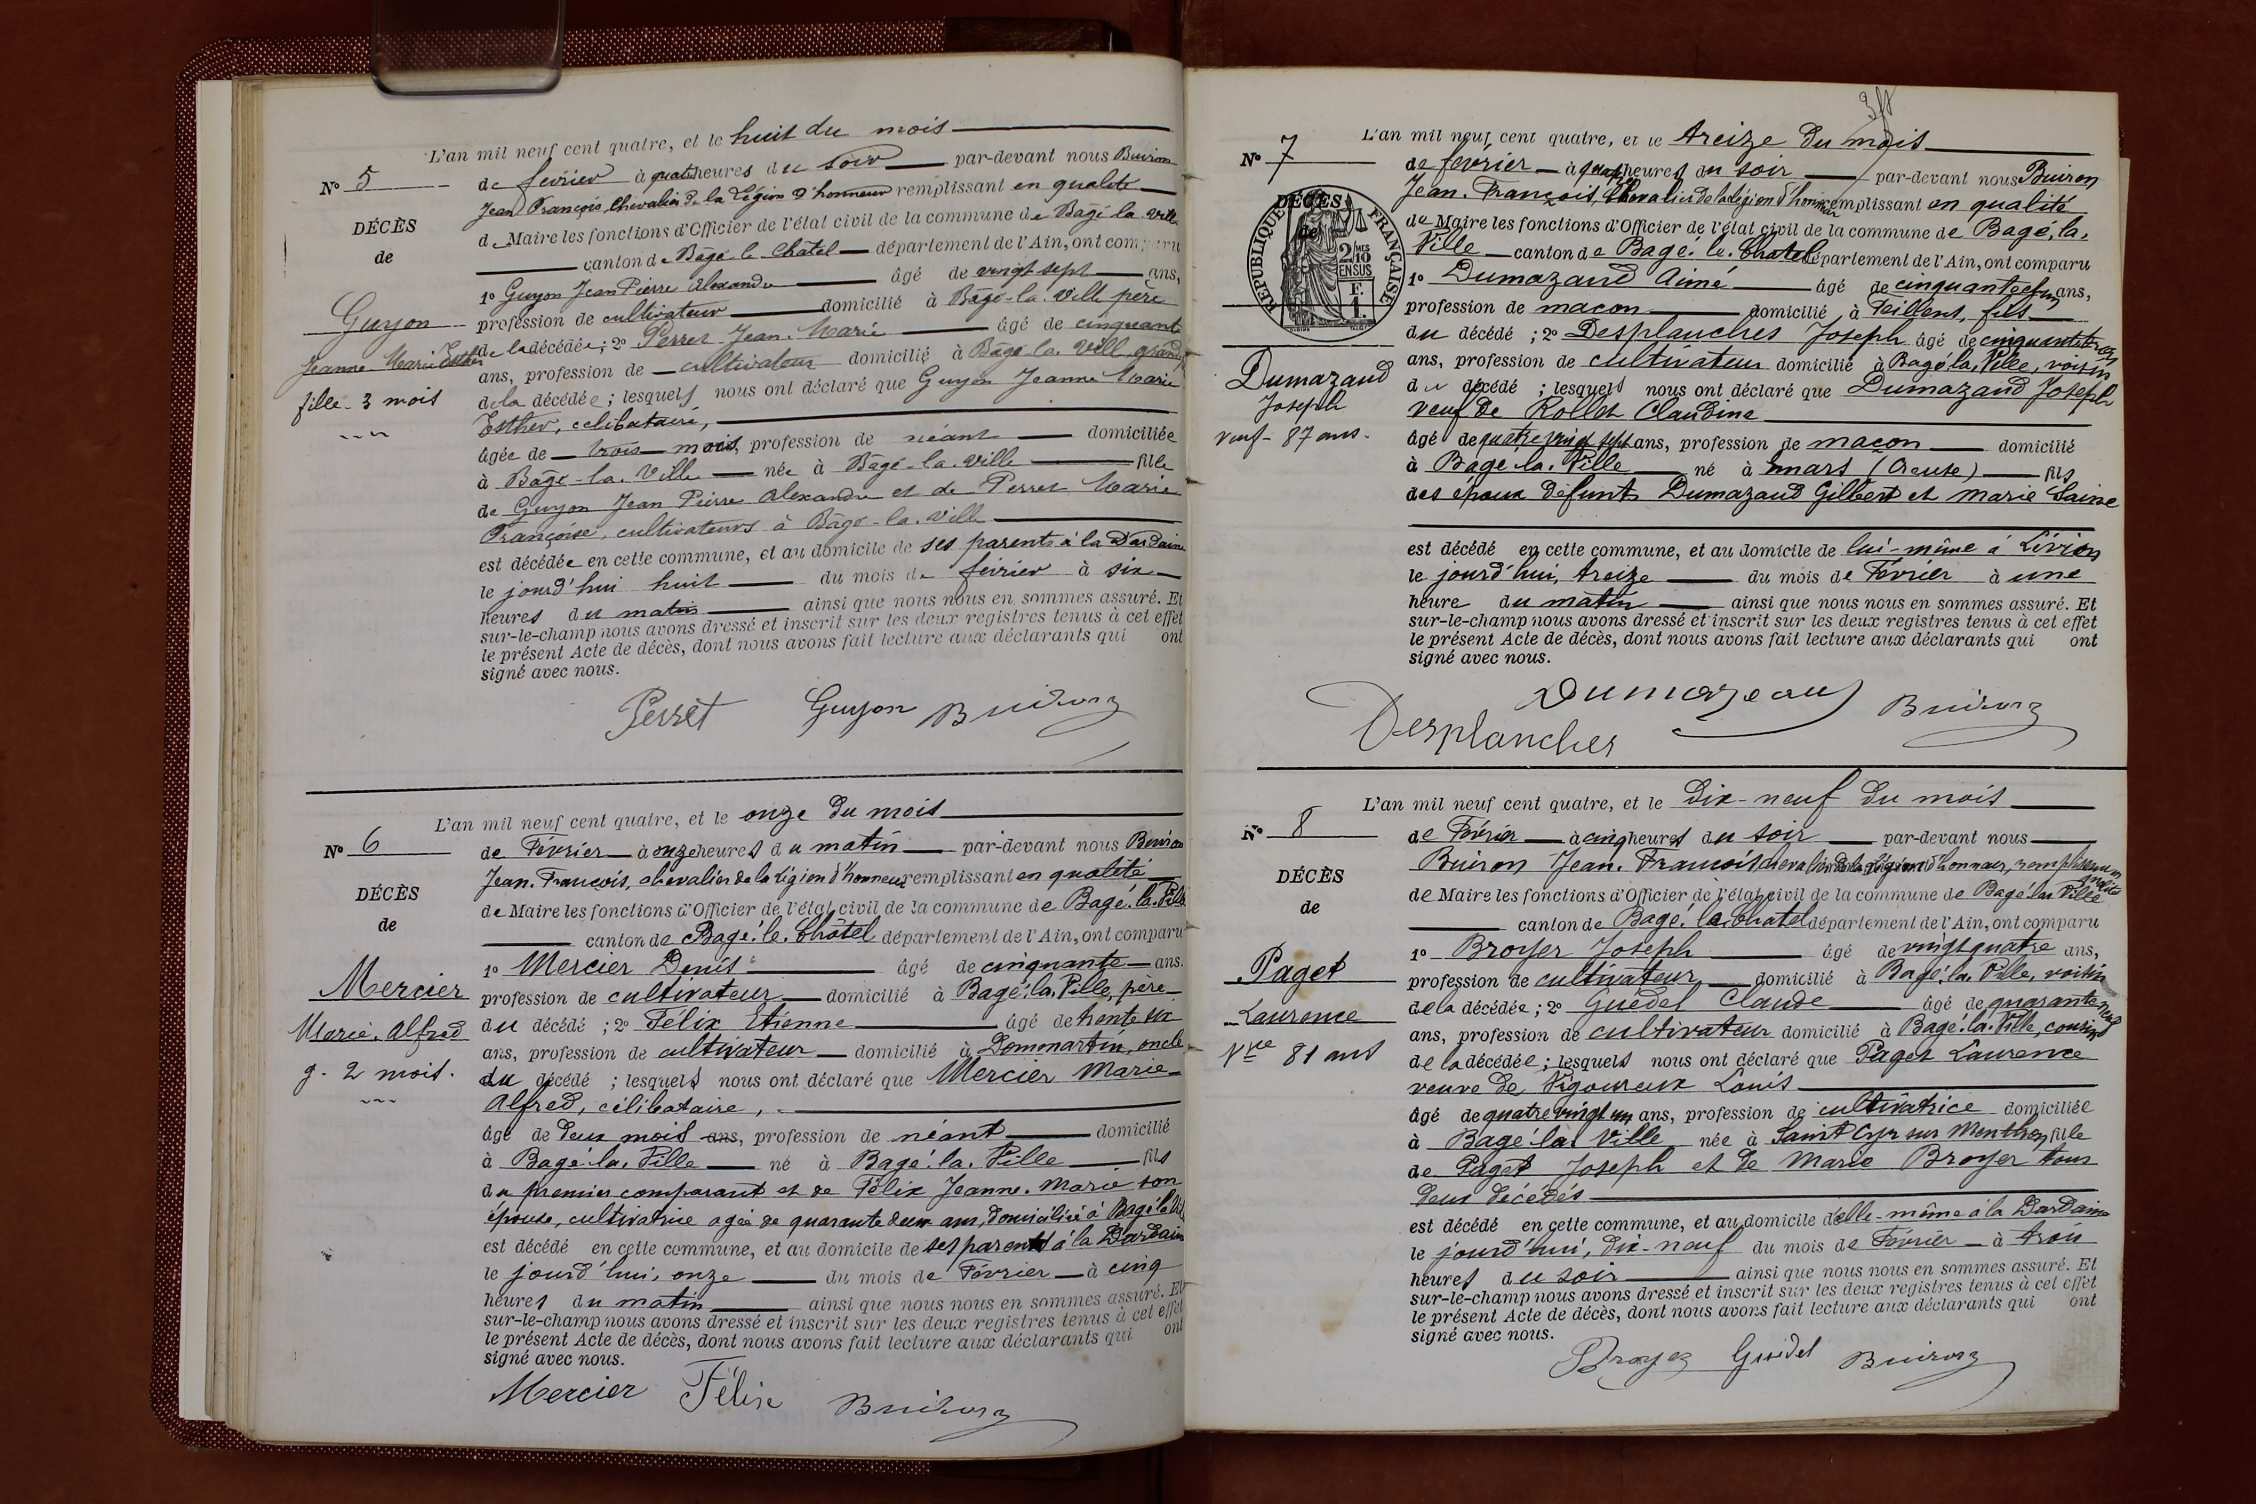 L'an mil neuf cent quatre, et le huit du mois
No 5
de fevrier à quatre heures du soir par-devant nous Buiron
Jean François, Chevalier de la Légion d'honneur remplissant en qualité
DÉCÈS
de Maire les fonctions d'Officier de l'état civil de la commune de Bâgé la Ville
de
canton de Bâgé le Châtel département de l'Ain, ont comparu
1o Guyon Jean Pierre Alexandre âgé de vingt sept ans,
Guyon
profession de cultivateur domicilié à Bâgé-la-Ville père
de la décédée; 2o Perret Jean-Marie âgé de cinquante
Jeanne Marie Esther
ans, profession de cultivateur domicilié à Bâgé la Ville
fille - 3 mois
de la décédée; lesquels nous ont déclaré que Guyon Jeanne Marie
Esther, célibataire,
âgée de trois mois, profession de néant domiciliée
à Bâgé-la-Ville née à Bâgé-la-Ville fille
de Guyon Jean Pierre Alexandre et de Perret Marie
Françoise, cultivateurs à Bâgé-la-Ville
est décédée en cette commune, et au domicile de ses parents à la Dardaine
le jourd'hui huit du mois de fevrier à six
heures du matin ainsi que nous nous en sommes assuré. Et
sur-le-champ nous avons dressé et inscrit sur les deux registres tenus à cet effet
le présent Acte de décès, dont nous avons fait lecture aux déclarants qui ont
signé avec nous.
Perret Guyon Buiron
L'an mil neuf cent quatre, et le onze du mois
No 6
de Février à onze heures du matin par-devant nous Buiron
Jean-François, chevalier de la légion d'honneur remplissant en qualité
DÉCÈS
de Maire les fonctions d'Officier de l'état civil de la commune de Bagé-la-Ville
de
canton de Bagé-le-Châtel département de l'Ain, ont comparu
1o Mercier Denis âgé de cinquante ans.
Mercier
profession de cultivateur domicilié à Bagé-la-Ville, père
Marie-Alfred
du décédé; 2o Félix Etienne âgé de trente six
ans, profession de cultivateur domicilié à Dommartin, oncle
g. 2 mois.
du décédé; lesquels nous ont déclaré que Mercier Marie-
Alfred, célibataire,
âgé de deux mois ans, profession de néant domicilié
à Bagé-la-Ville né à Bagé-la-Ville fils
du premier comparant et de Félix Jeanne-Marie son
épouse, cultivatrice agée de quarante deux ans, domiciliée à Bagé la Ville
est décédé en cette commune, et au domicile de ses parents à la Dardaine
le jourd'hui, onze du mois de Février à cinq
heures du matin ainsi que nous nous en sommes assuré. Et
sur-le-champ nous avons dressé et inscrit sur les deux registres tenus à cet effet
le présent Acte de décès, dont nous avons fait lecture aux déclarants qui ont
signé avec nous.
Mercier Félix Buiron
L'an mil neuf cent quatre, et le treize du mois
No 7
de février à quatre heures du soir par-devant nous Buiron
Jean-François, Chevalier de la légion d'honneur remplissant en qualité
DÉCÈS
de
RÉPUBLIQUE FRANÇAISE
2/10 MES
EN SUS
F.
1.
du Maire les fonctions d'Officier de l'état civil de la commune de Bagé-la-
Ville canton de Bagé-le-Chatel département de l'Ain, ont comparu
1o Dumazaud Aimé âgé de cinquante et un ans,
profession de maçon domicilié à Feillens, fils
du décédé; 2o Desplanches Joseph âgé de cinquante trois
ans, profession de cultivateur domicilié à Bagé la Ville, voisin
Dumazaud
Joseph
veuf - 87 ans.
du décédé; lesquels nous ont déclaré que Dumazaud Joseph
veuf de Rollet Claudine
âgé de quatre vingt sept ans, profession de maçon domicilié
à Bagé-la-Ville né à mars (Creuse) fils
des époux défunts Dumazaud Gilbert et Marie Saine
est décédé en cette commune, et au domicile de lui-même à Livion
le jourd'hui, treize du mois de Février à une
heure du matin ainsi que nous nous en sommes assuré. Et
sur-le-champ nous avons dressé et inscrit sur les deux registres tenus à cet effet
le présent Acte de décès, dont nous avons fait lecture aux déclarants qui ont
signé avec nous.
Dumazeaud Buiron
Desplanches
L'an mil neuf cent quatre, et le dix-neuf du mois
No 8
de Février à cinq heures du soir par-devant nous
Buiron Jean-François chevalier de la légion d'honneur, remplissant en qualité
DÉCÈS
de Maire les fonctions d'Officier de l'état civil de la commune de Bagé la Ville
de
canton de Bagé-le-Chatel département de l'Ain, ont comparu
1o Broyer Joseph âgé de vingt quatre ans,
Paget
profession de cultivateur domicilié à Bagé-la-Ville, voisin
Laurence
de la décédée; 2o Guédel Claude âgé de quarante neuf
ans, profession de cultivateur domicilié à Bagé-la-Ville, cousin
Vve 81 ans
de la décédée; lesquels nous ont déclaré que Paget Laurence
veuve de Vigoureux Louis
âgé de quatre vingt un ans, profession de cultivatrice domiciliée
à Bagé-la-Ville née à Saint Cyr sur Menthon fille
de Paget Joseph et de Marie Broyer tous
deux décédés
est décédé en cette commune, et au domicile d'elle-même à la Dardaine
le jourd'hui, dix-neuf du mois de Février à trois
heures du soir ainsi que nous nous en sommes assuré. Et
sur-le-champ nous avons dressé et inscrit sur les deux registres tenus à cet effet
le présent Acte de décès, dont nous avons fait lecture aux déclarants qui ont
signé avec nous.
Broyer Guédel Buiron